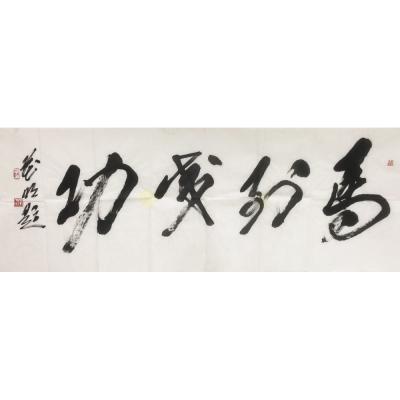 馬到成功
题